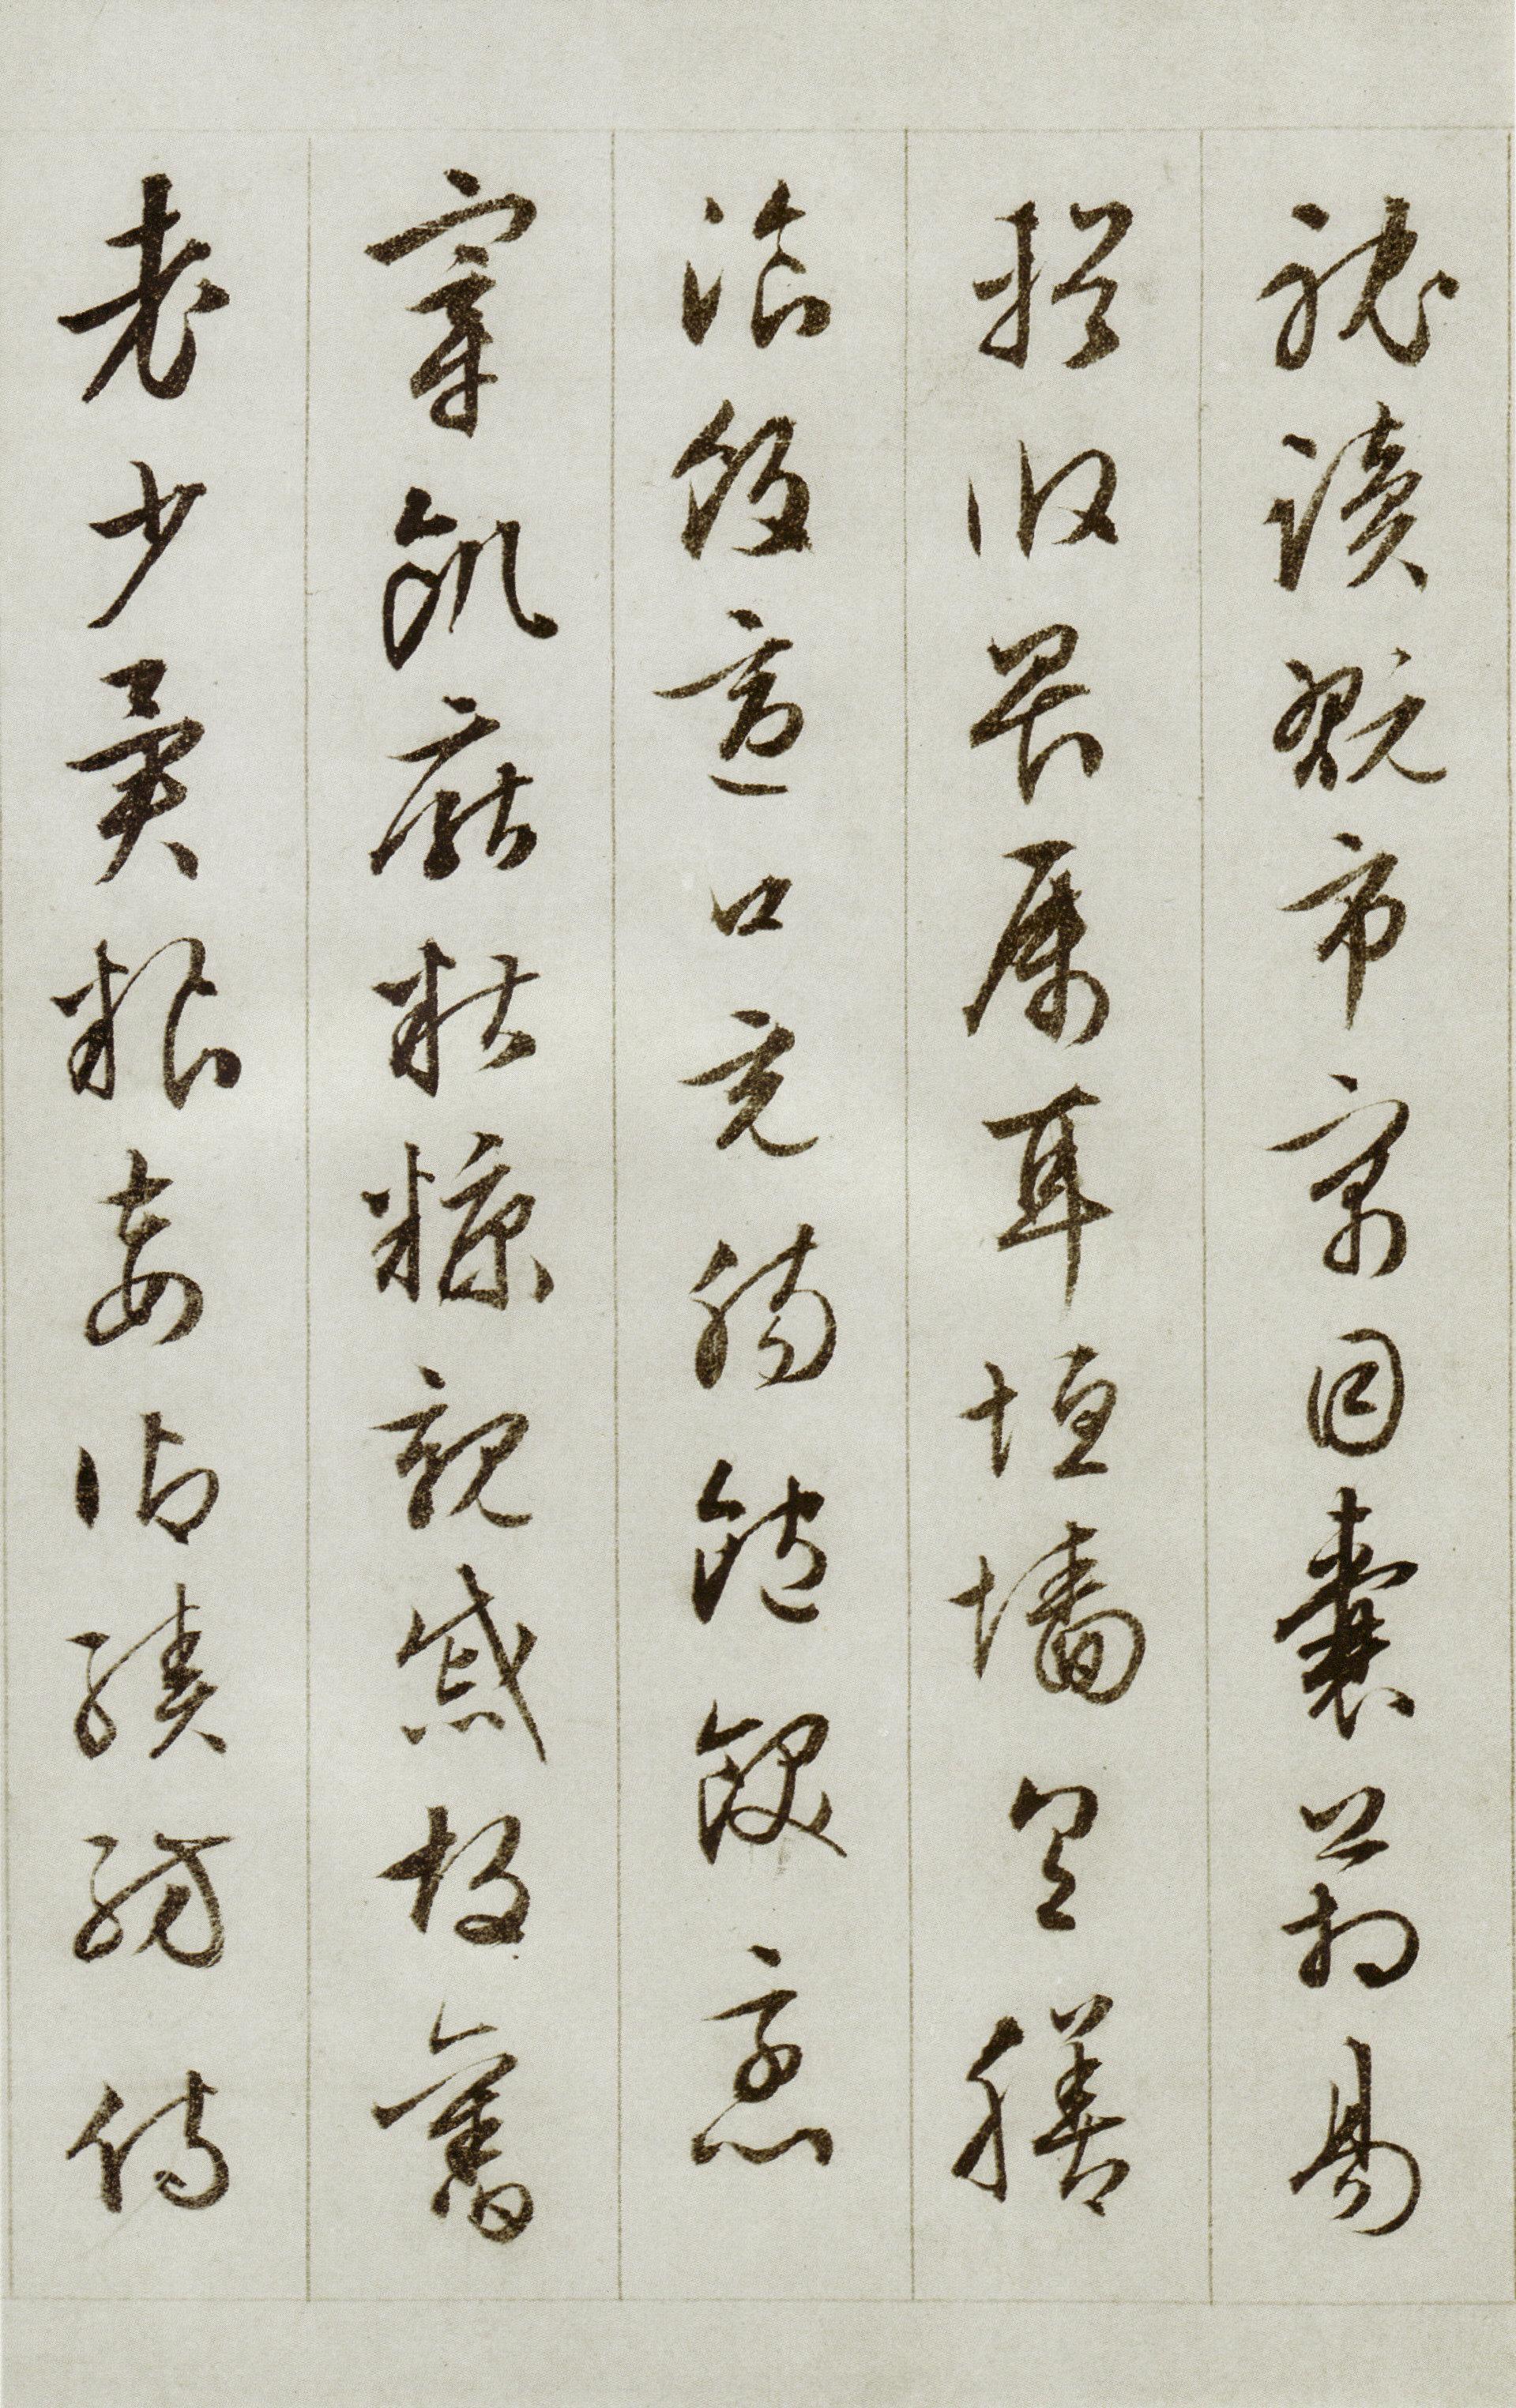 耽讀翫市寓目囊箱易
輶攸畏属耳垣墻具膳
飡飯適口充腸飽飫烹
宰飢厭糟糠親戚故舊
老少異粮妾御績紡侍